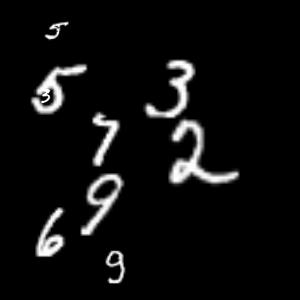 5
5 3
3
7 2
9
6
9